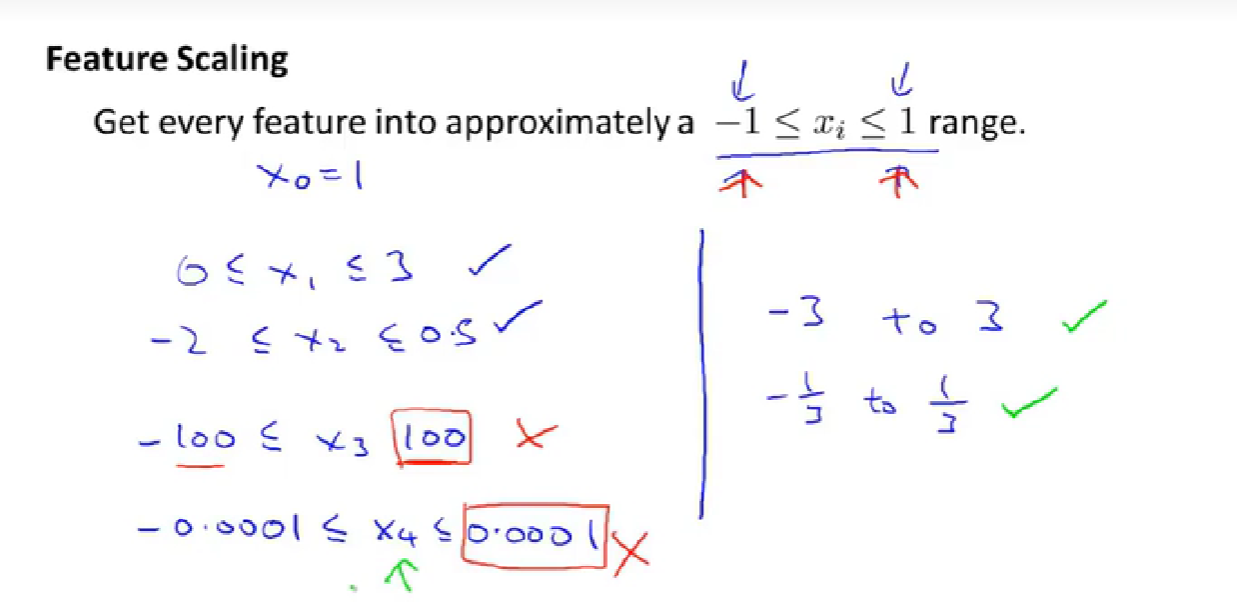 Feature Scaling
Get every feature into approximately a −1 ≤ xᵢ ≤ 1 range.
x₀ = 1
0 ≤ x₁ ≤ 3 ✓
−2 ≤ x₂ ≤ 0.5 ✓
−100 ≤ x₃ 100 ×
−0.0001 ≤ x₄ ≤ 0.0001 ×
−3 to 3 ✓
−1/3 to 1/3 ✓